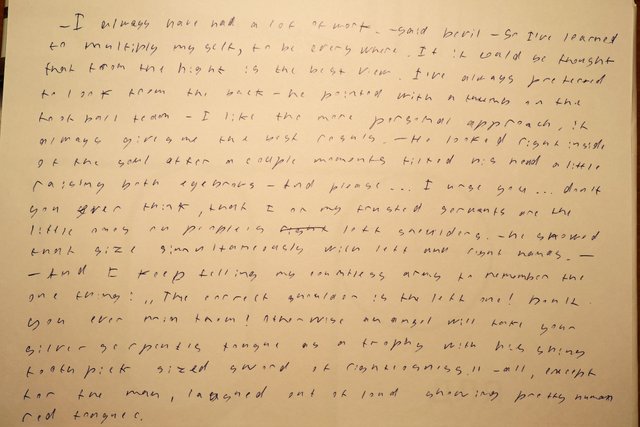 - I always have had a lot of work. - said Devil - So I've learned
to multiply my self, to be everywhere. If it could be thought
that from the hight is the best view. I've always prefered
to look from the back - he pointed with a thumb on the
football team - I like the more personal approach, it
always gives me the best results. - He looked right inside
of the soul after a couple moments tilted his head a little
raising both eyebrows - And please... I urge you... don't
you ever think, that I or my trusted servants are the
little ones on people's right left shoulders. - he showed
that size simultaneously with left and right hands. -
- And I keep telling my countless army to remember the
one thing: ,,The correct shoulder is the left one! Don't
you ever them! Otherwise an angel will take your
silver serpents tongue as a trophy with his shiny
toothpick sized sword of righteousness." - all, except
for the man, laughed out of loud showing pretty human
red tongues.